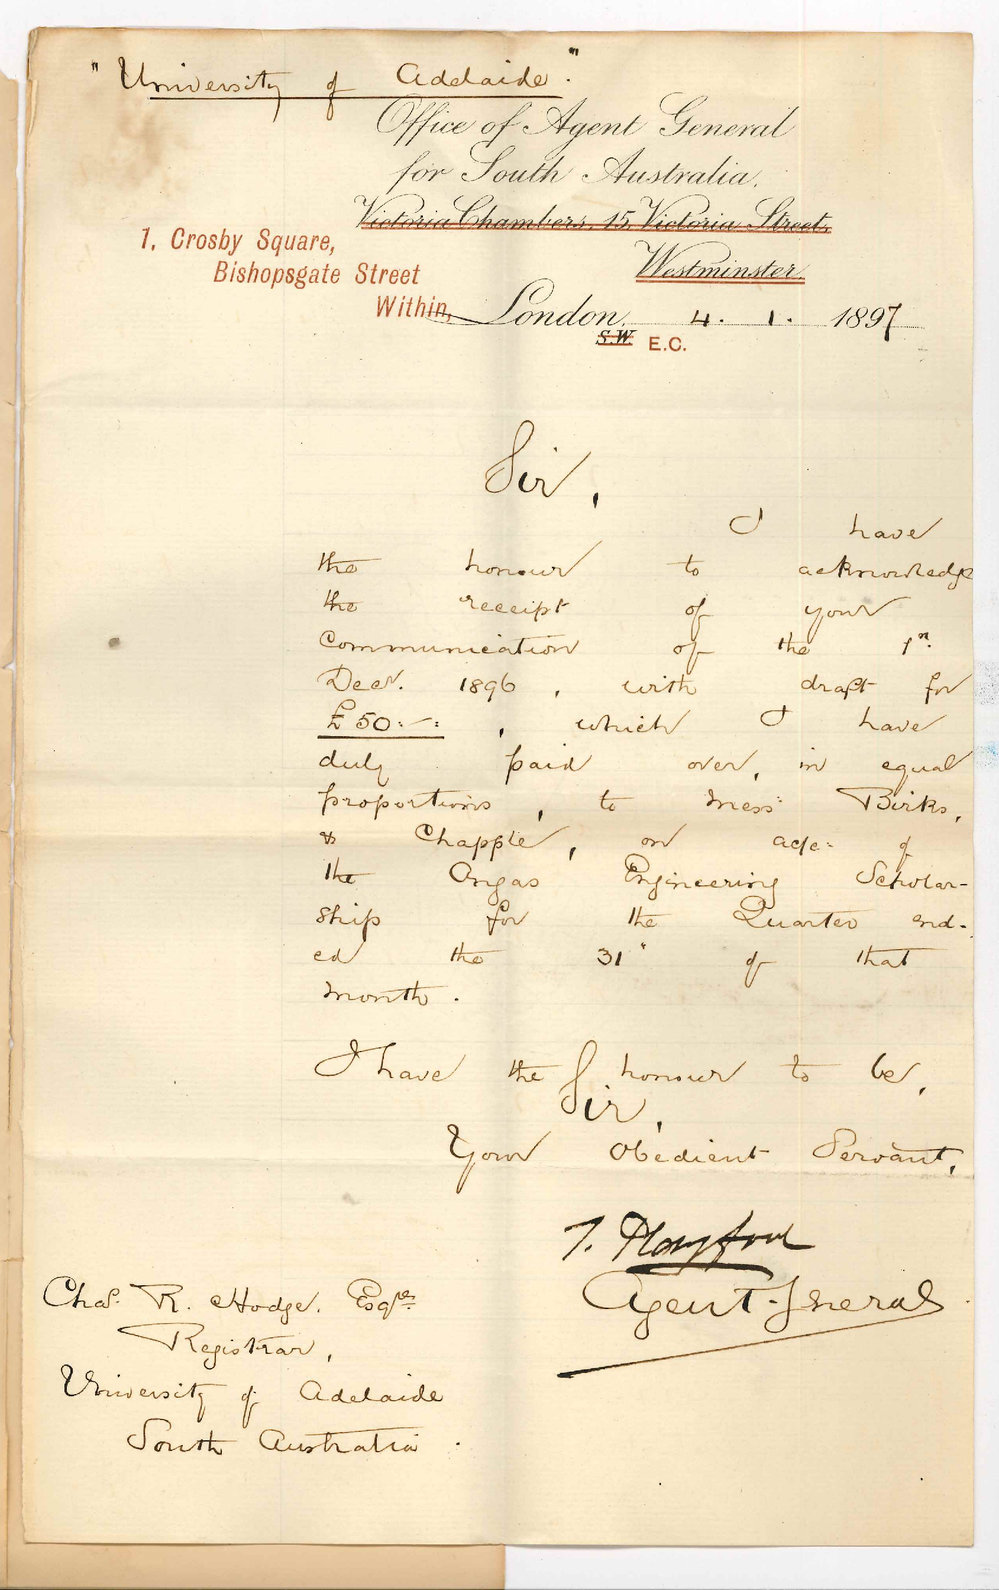 "University of Adelaide".
Office of Agent General
for South Australia,
Victoria Chambers, 15, Victoria Street,
Westminster.
1, Crosby Square,
Bishopsgate Street
Within,
London, 4. 1. 1897
S.W. E.C.
Sir,
I have
the honour to acknowledge
the receipt of your
communication of the 1st.
Decr. 1896, with draft for
£50:-:, which I have
duly paid over, in equal
proportions, to Mess: Birks,
& Chapple, on a/c: of
the Angas Engineering Scholar-
ship for the Quarter end-
ed the 31" of that
month.
I have the honour to be,
Sir,
Your Obedient Servant,
T. Playford
Agent-General
Chas. R. Hodge, Esqre
Registrar,
University of Adelaide
South Australia.